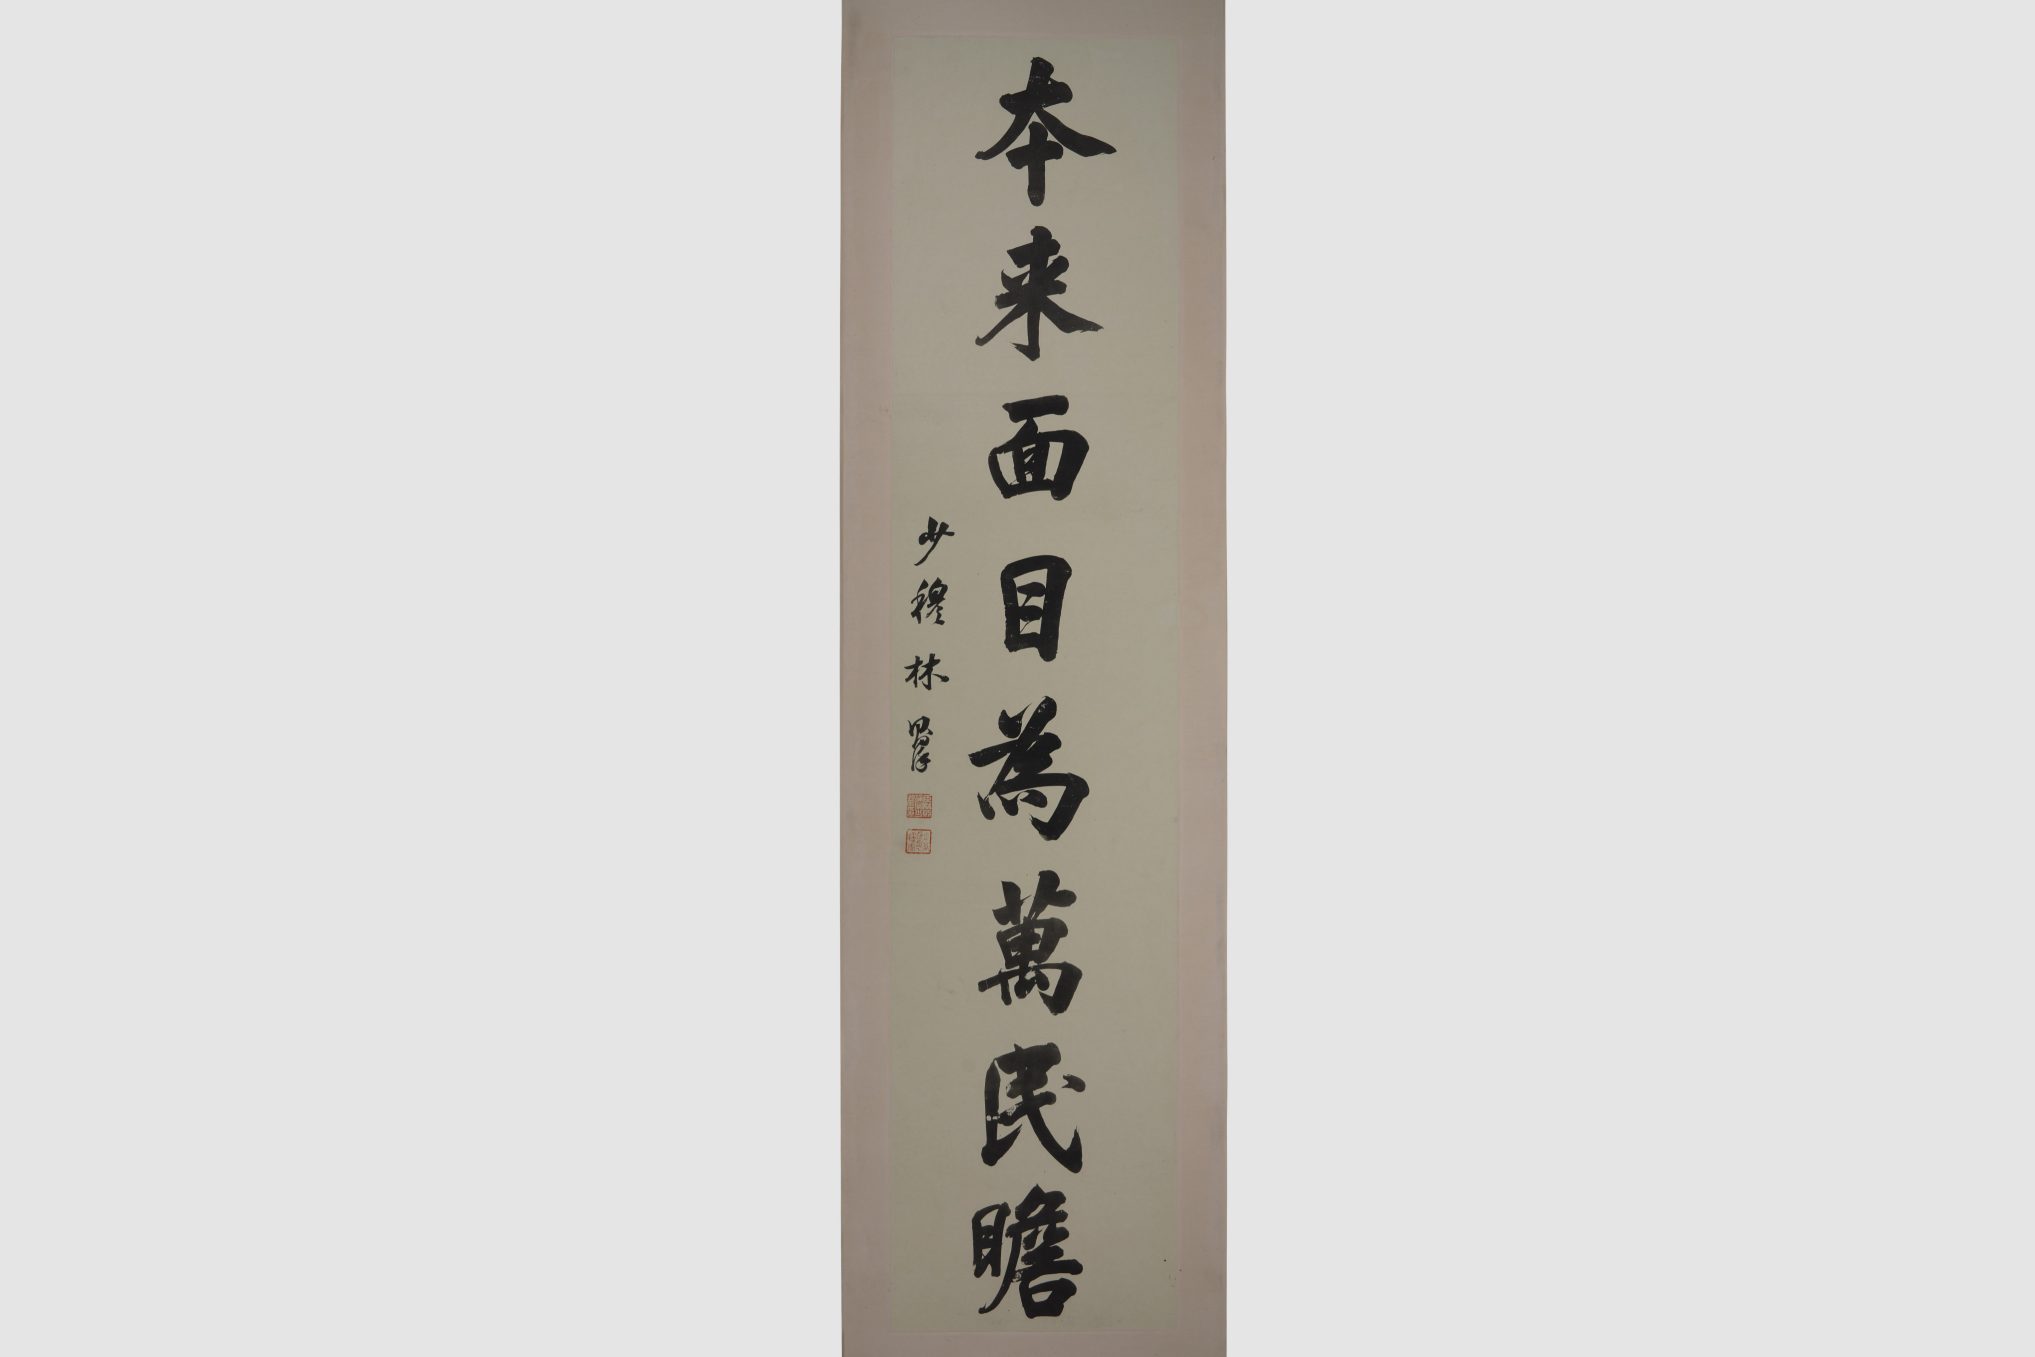 本来面目為萬民瞻
少穆林則徐